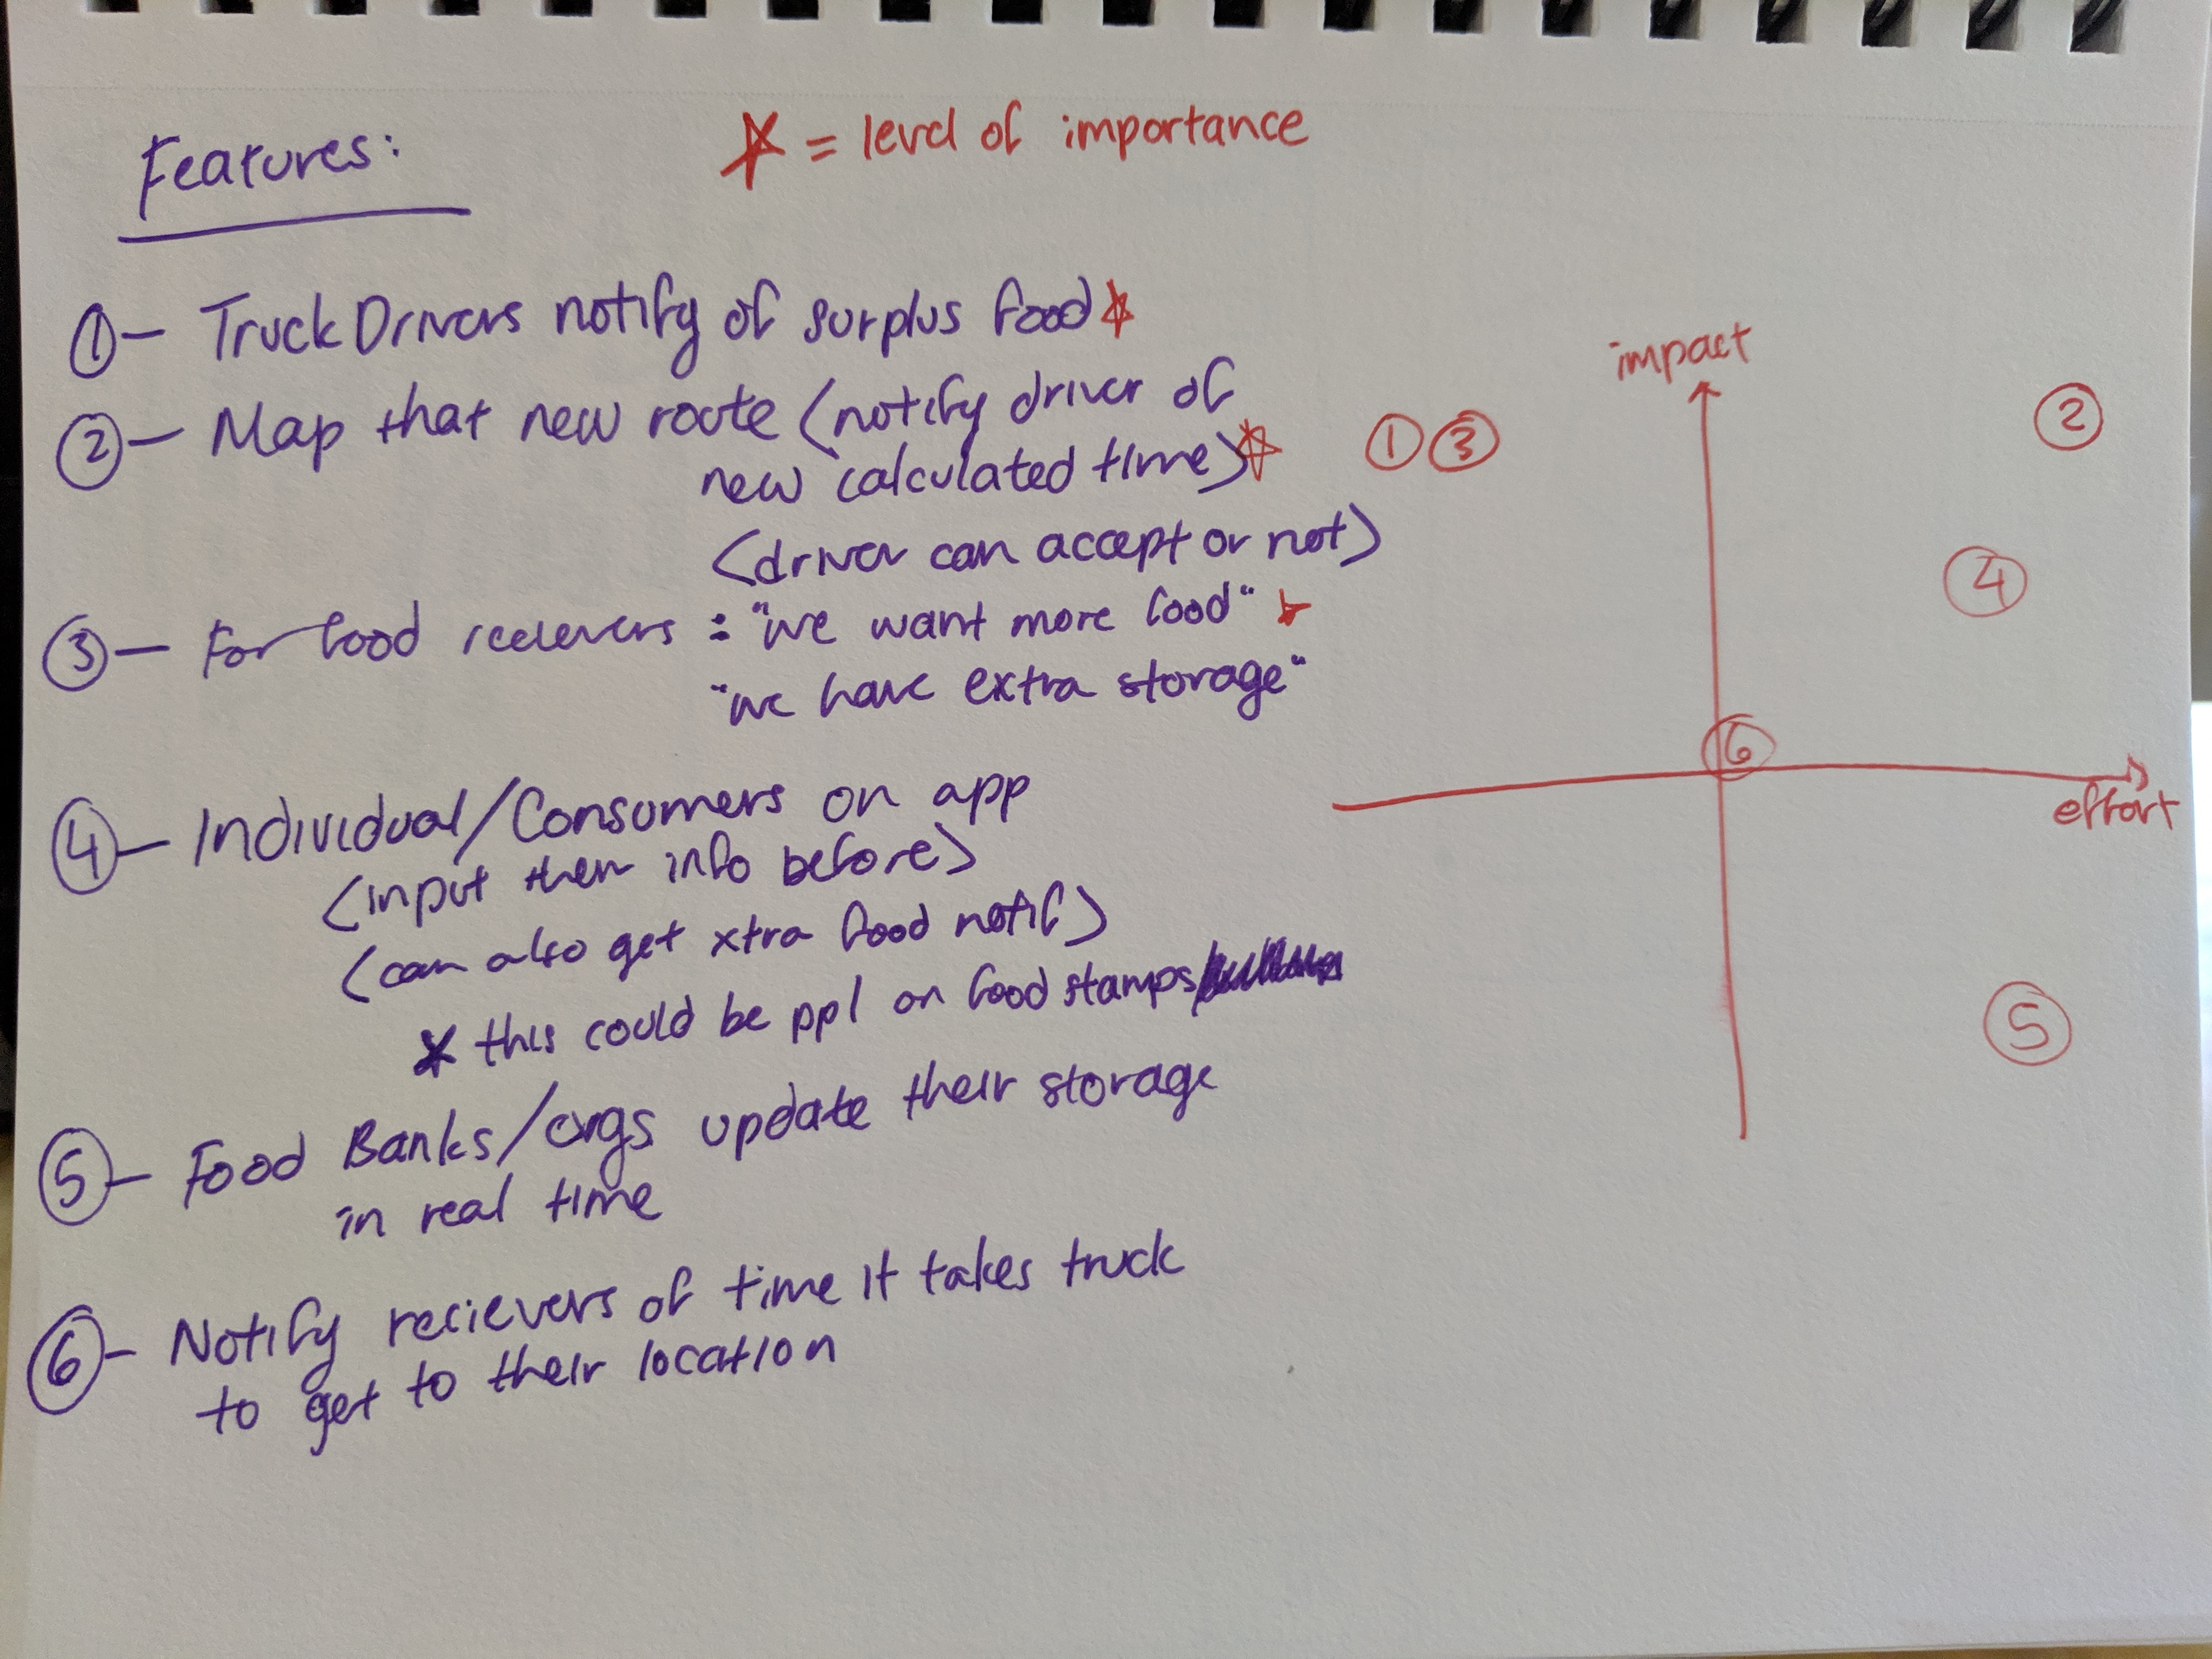 Features:
★ = level of importance
① - Truck Drivers notify of surplus food ★
② - Map that new route (notify driver of
new calculated time) ★
(driver can accept or not)
③ - For food recievers : "we want more food" ★
"we have extra storage"
④ - Individual/Consumers on app
(input their info before)
(can also get xtra food notif)
* this could be ppl on food stamps
⑤ - Food Banks/orgs update their storage
in real time
⑥ - Notify recievers of time it takes truck
to get to their location
impact
① ③
②
④
⑥
effort
⑤